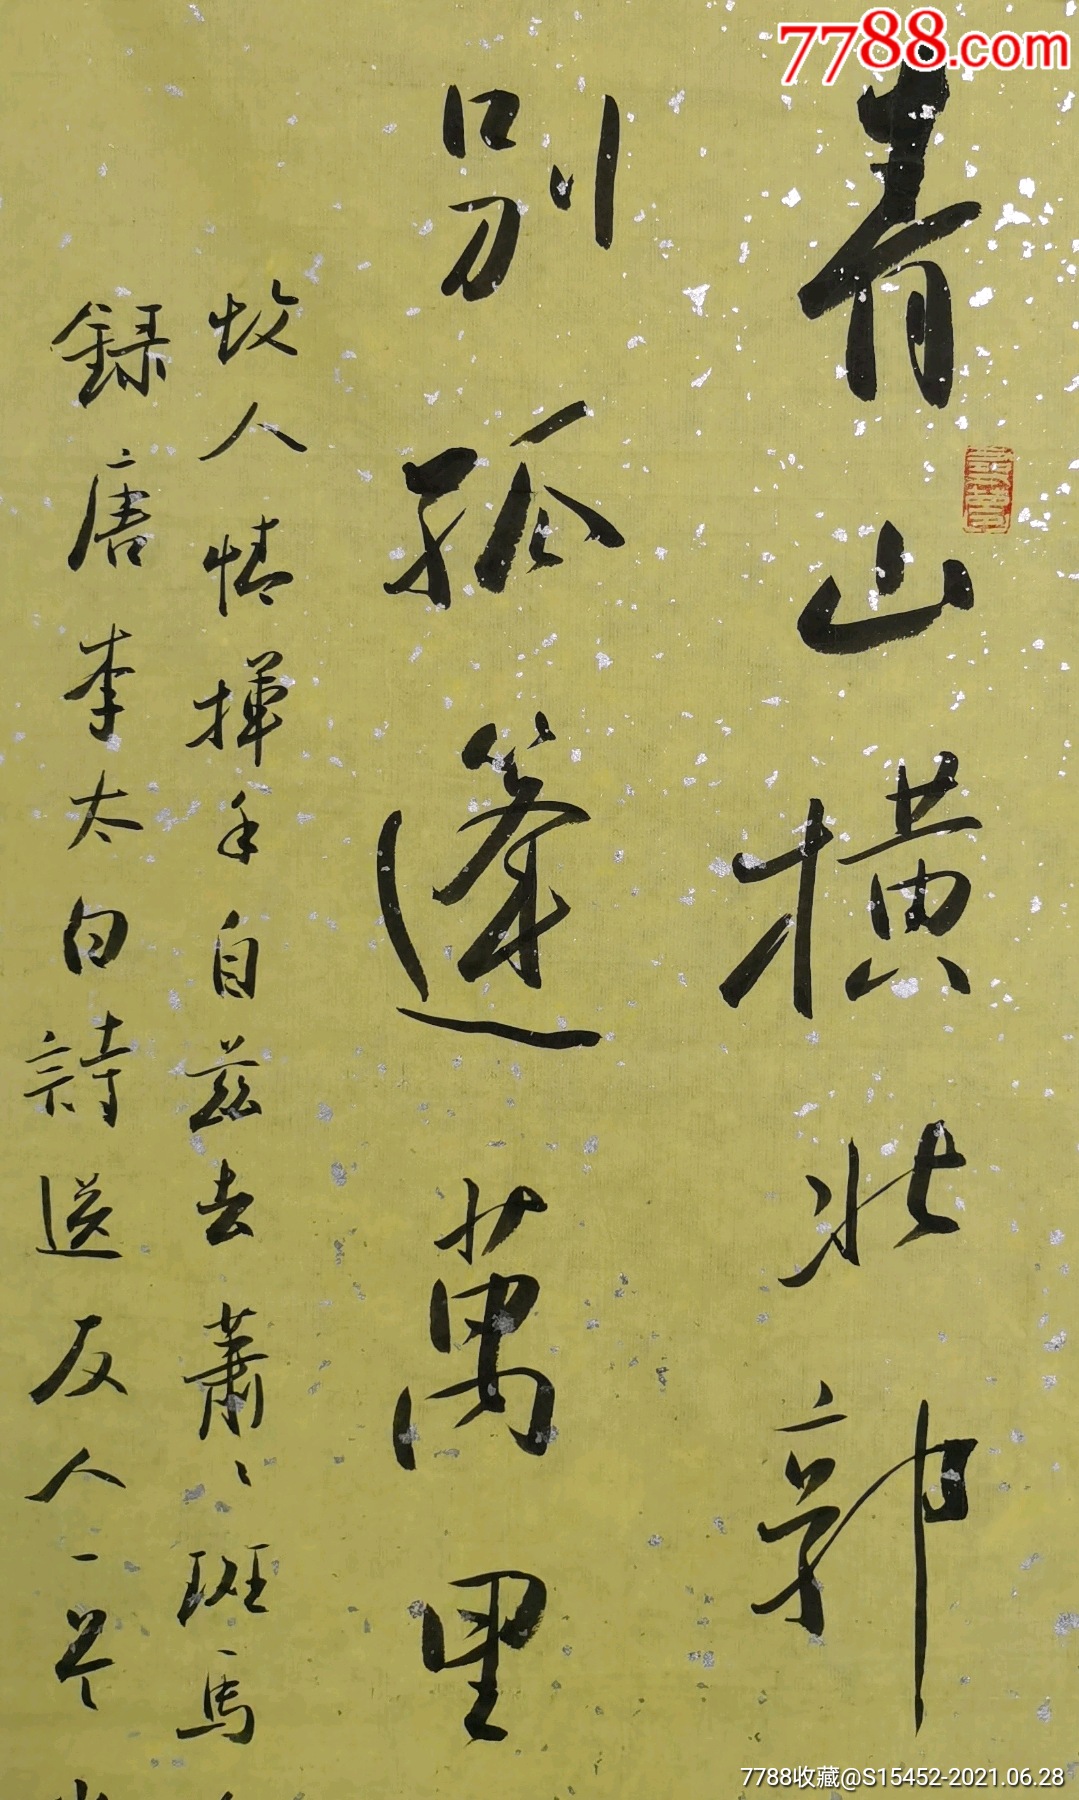 7788.com
青山橫北郭
別孤篷萬里
故人情揮手自茲去蕭〻班馬
録唐李太白詩送友人一首
7788收藏@S15452-2021.06.28